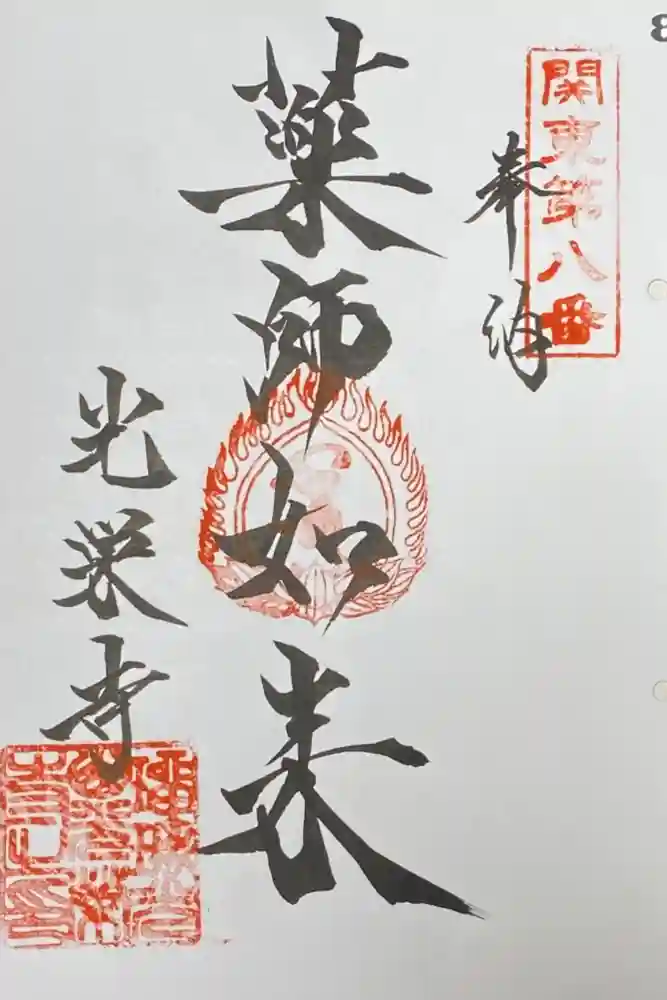 関東第八番
奉納
薬師如来
光栄寺